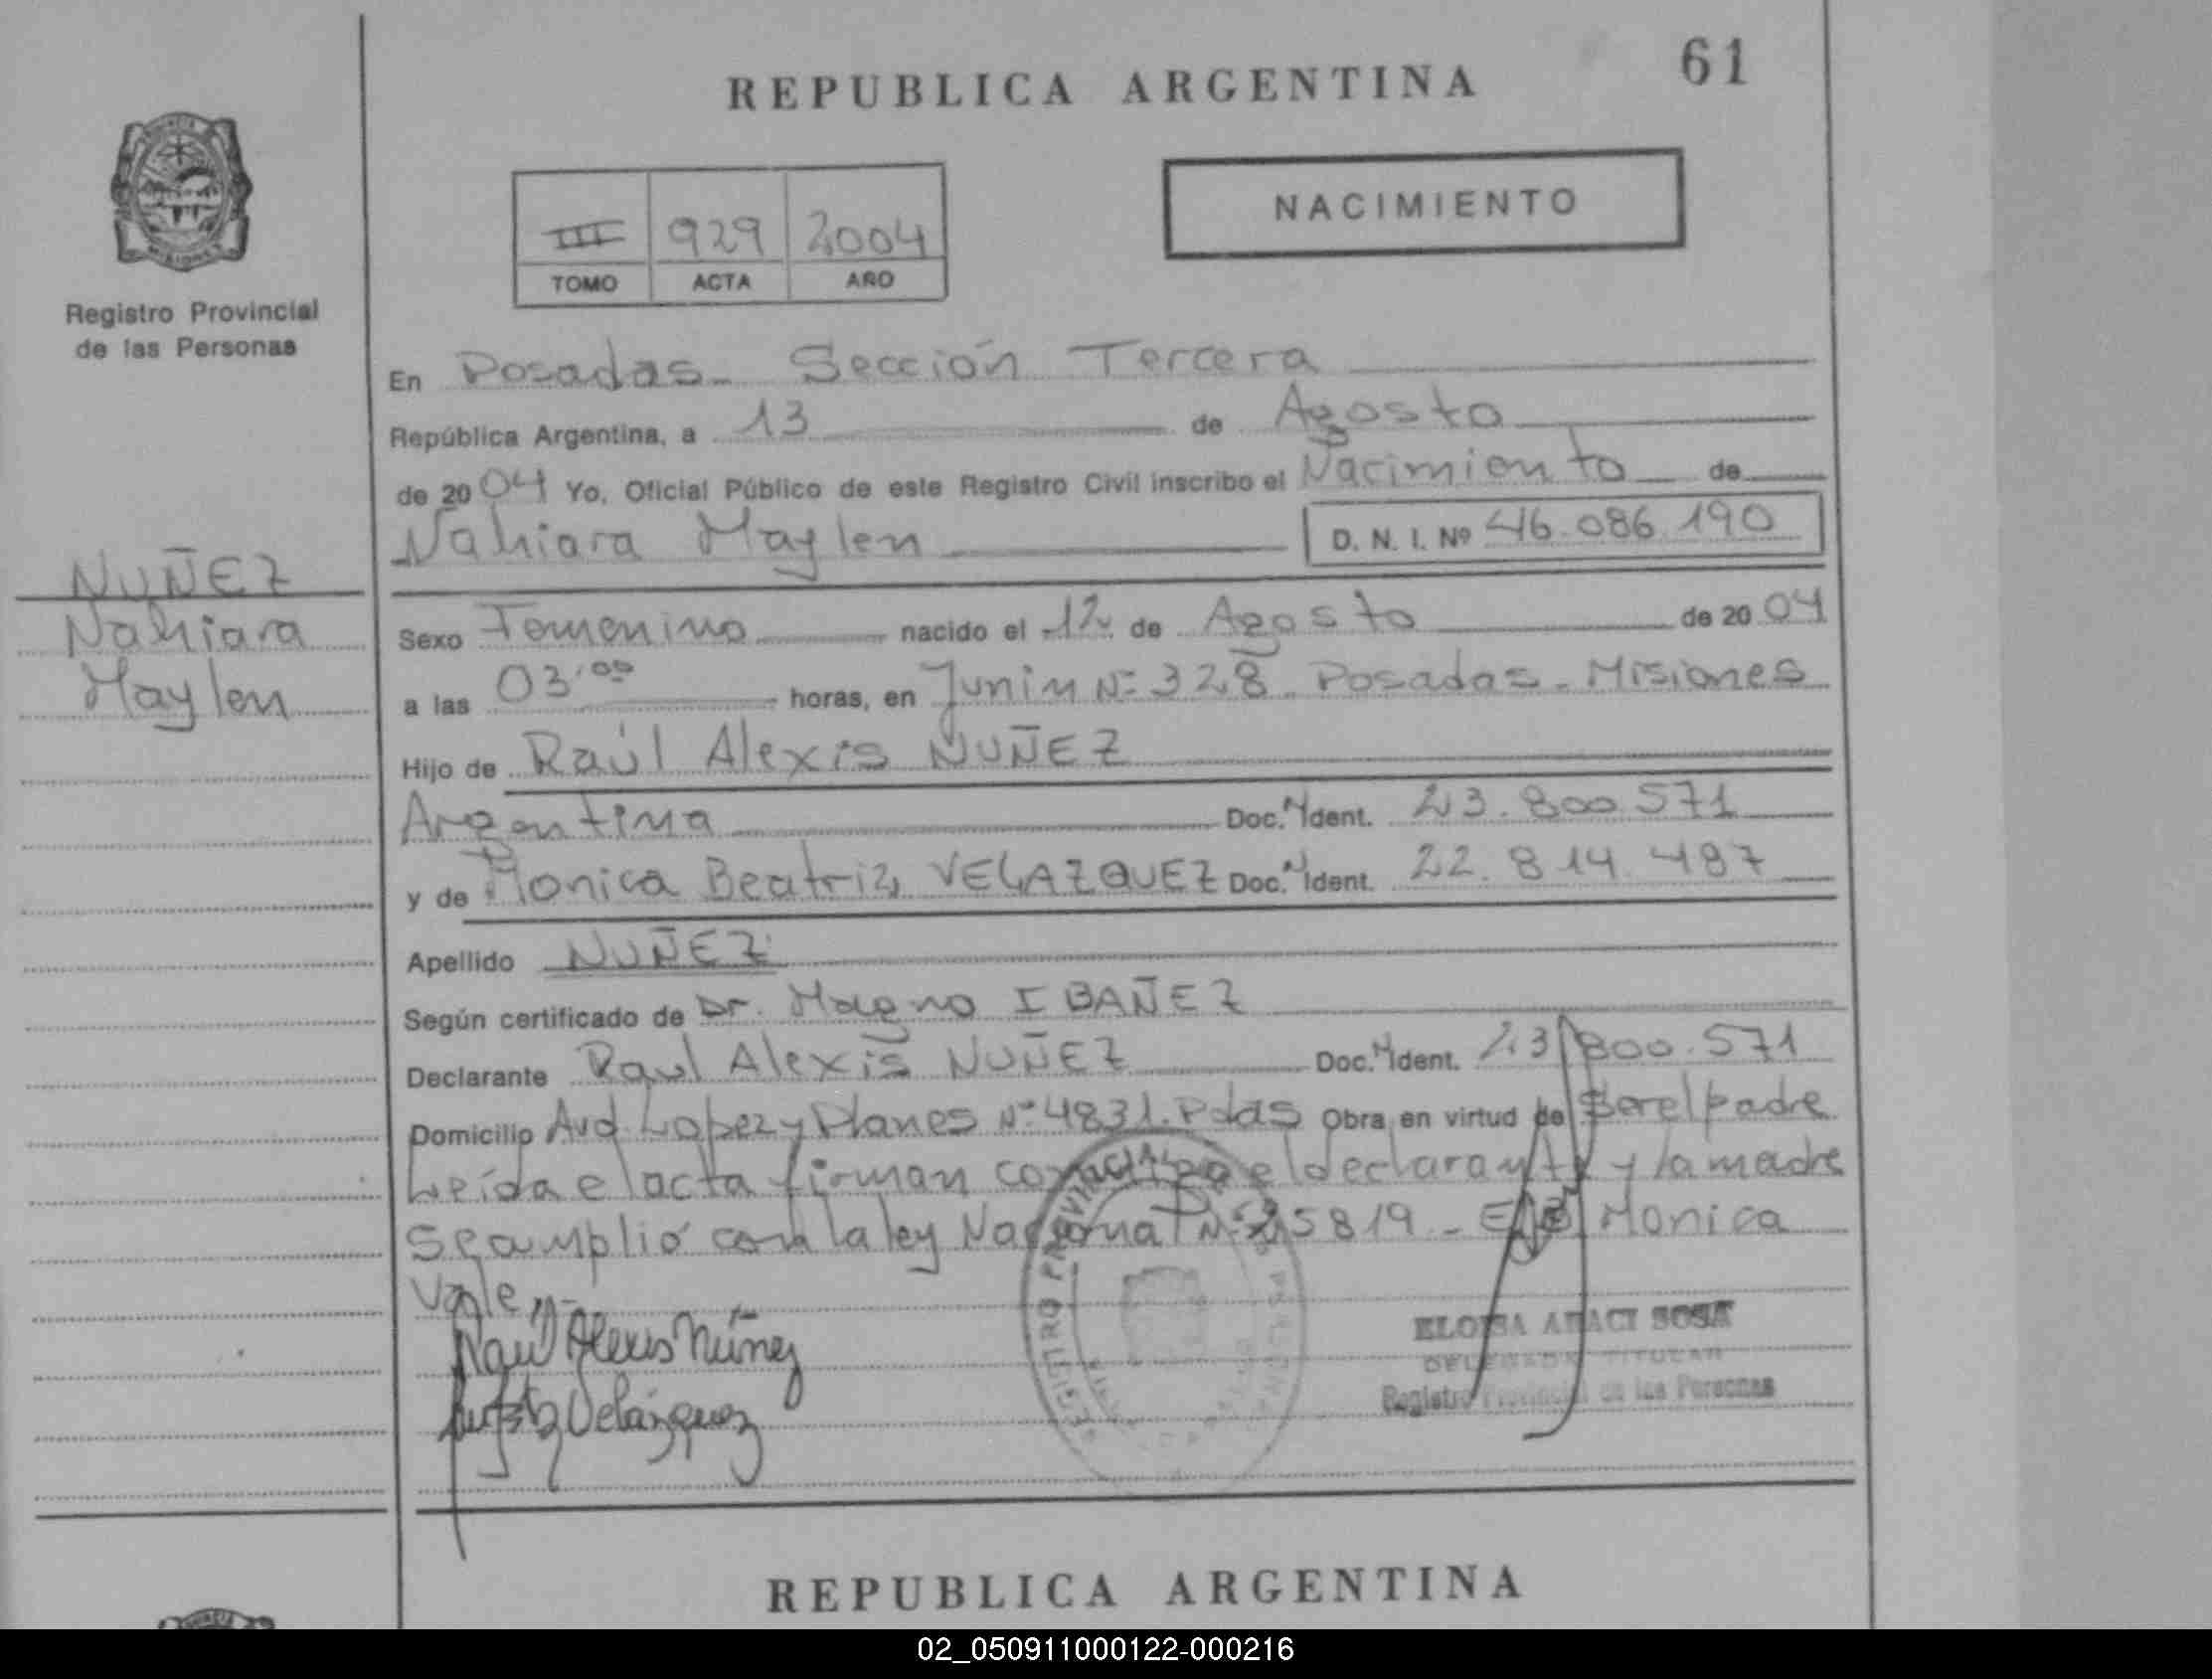 REPUBLICA ARGENTINA
61
NACIMIENTO
III 929 2004
TOMO ACTA AÑO
Registro Provincial
de las Personas
En Posadas - Sección Tercera
República Argentina, a 13 de Agosto
de 2004 Yo, Oficial Público de este Registro Civil inscribo el Nacimiento de
Nahiara Maylen D. N. I. Nº 46.086.190
NUÑEZ
Nahiara
Maylen
Sexo Femenino nacido el 12 de Agosto de 2004
a las 03:00 horas, en Junin Nº 328 - Posadas - Misiones
Hijo de Raúl Alexis NUÑEZ
Argentina Doc. N Ident. 23.800.571
y de Monica Beatriz VELAZQUEZ Doc. N Ident. 22.814.487
Apellido NUÑEZ
Según certificado de Dr. Magno IBAÑEZ
Declarante Raul Alexis NUÑEZ Doc. N Ident. 23.800.571
Domicilio Avd. Lopez y Planes Nº 4831. Pdas Obra en virtud de Ser el padre
Leída el acta firman conmigo el declarante y la madre
Se amplió con la ley Nacional Nº 25819 - Monica
Vale -
Raúl Alexis Núñez
Velázquez
REGISTRO PROVINCIAL
ELOISA ARACI SOSA
DELEGADA TITULAR
Registro Provincial de las Personas
REPUBLICA ARGENTINA
02_050911000122-000216